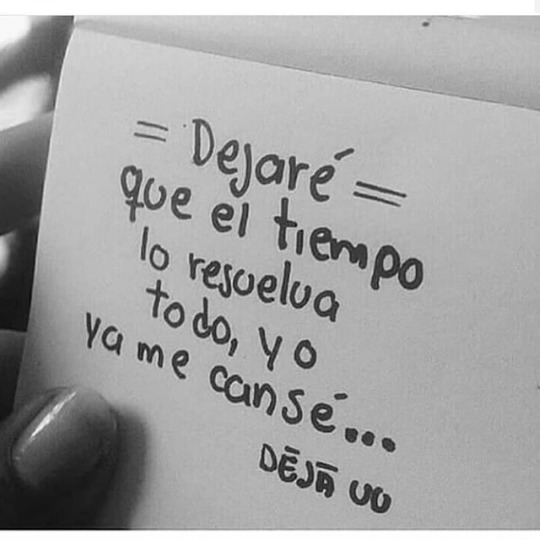 = Dejaré =
que el tiempo
lo resuelva
todo, yo
ya me cansé...
DĒJĀ VU